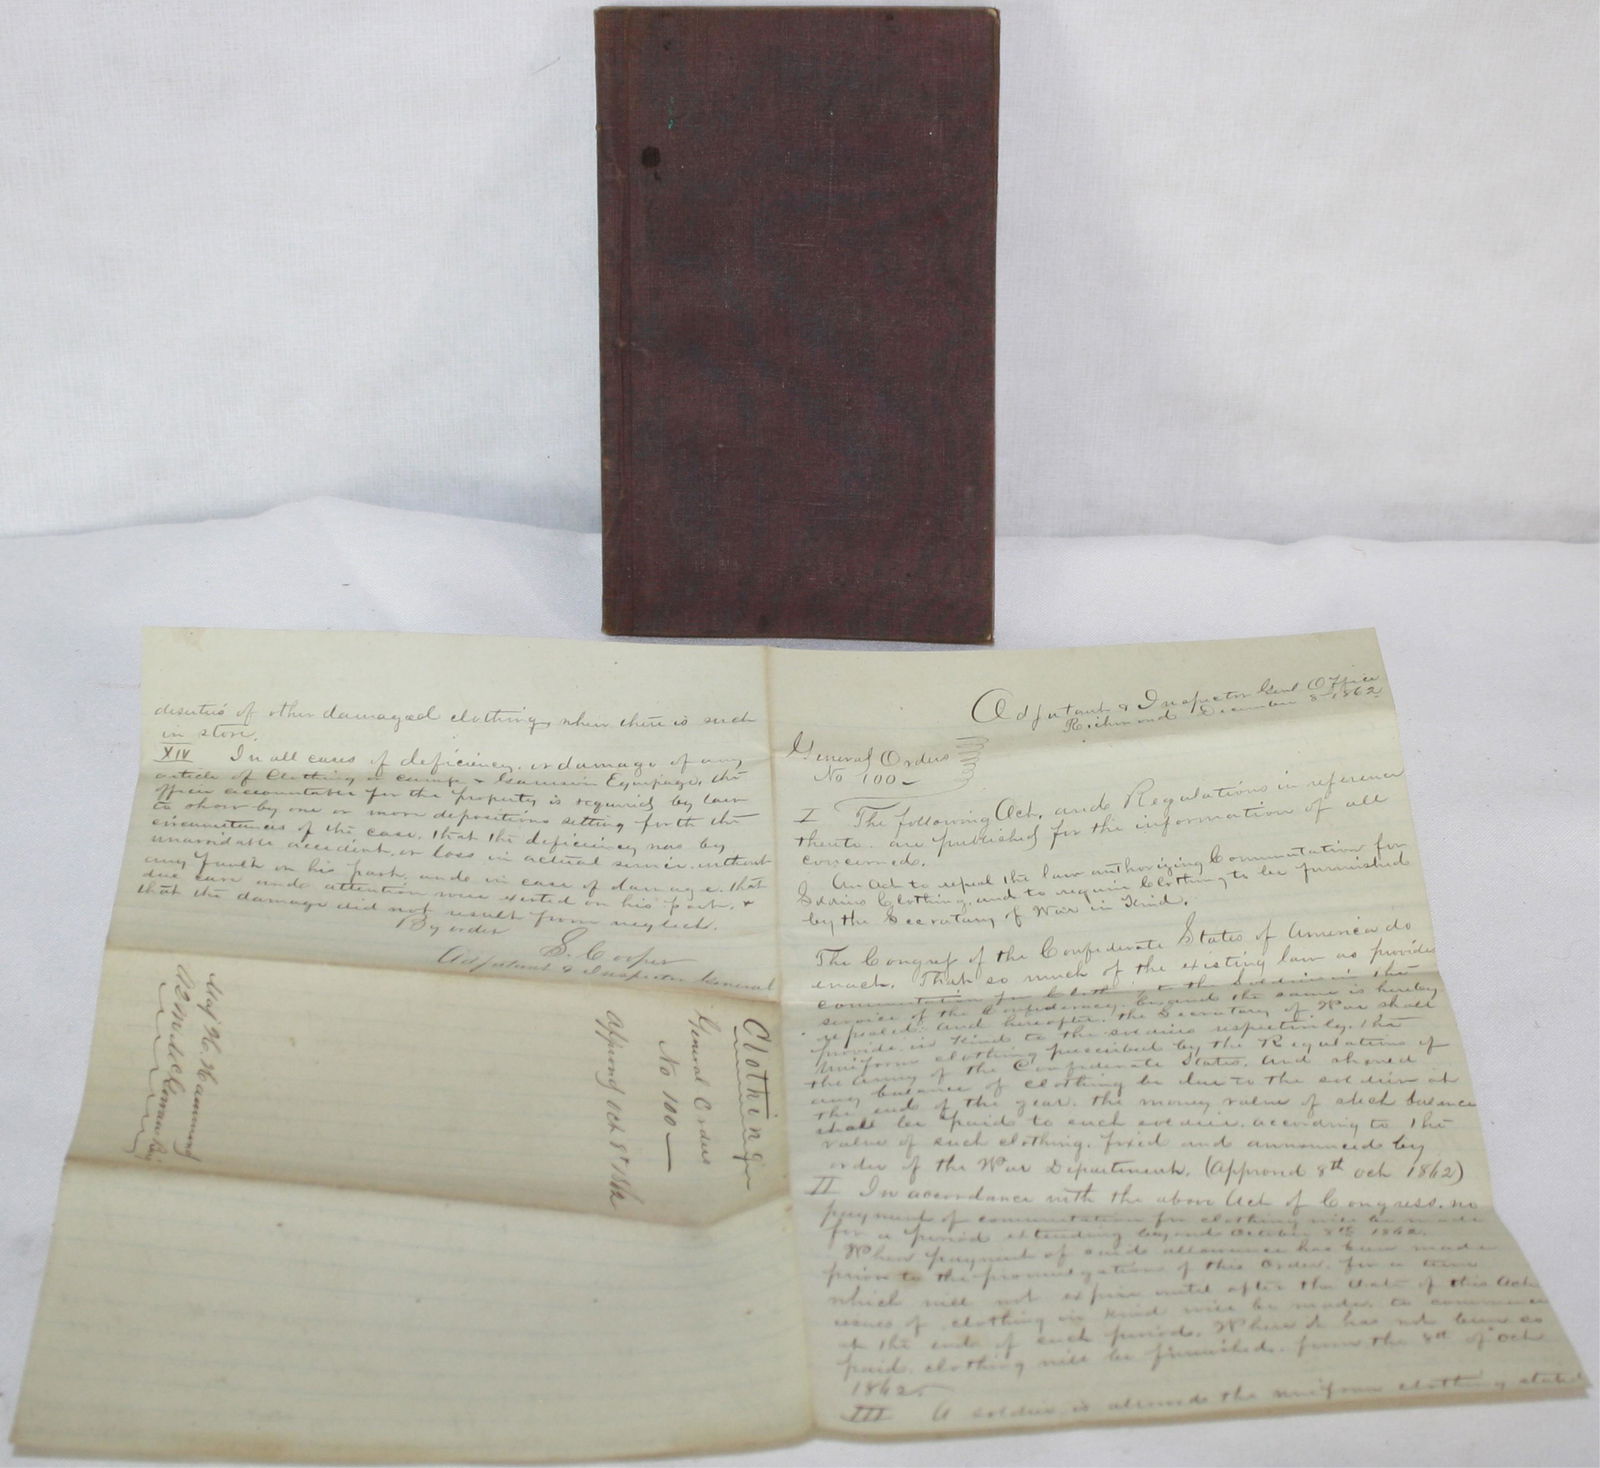 disuties of other damaged clothing, when there is such
in store.
XIV In all cases of deficiency, or damage of any
article of Clothing or camp & Garrison Equipage, the
officer accountable for the property is required by law
to show by one or more depositions setting forth the
circumstances of the case, that the deficiency was by
unavoidable accident, or loss in actual service, without
any fault on his part, and in case of damage, that
due care and attention were exerted on his part, &
that the damage did not result from neglect.
By order
S. Cooper
Adjutant & Inspector General
Clothing
General Orders
No 100
Approved Oct 8th 1862
Maj
Adjutant & Inspector Genl Office
Richmond December 8 1862
General Orders
No 100
I The following Act, and Regulations in reference
thereto, are published for the information of all
concerned.
An Act to repeal the law authorizing Commutation for
Soldiers Clothing, and to require Clothing to be furnished
by the Secretary of War in Kind.
The Congress of the Confederate States of America do
enact, That so much of the existing law as provides
commutation for Clothing to the soldiers in the
service of the Confederacy, be, and the same is hereby
repealed: and hereafter, the Secretary of War shall
provide in Kind to the soldiers respectively, the
uniform clothing prescribed by the Regulations of
the Army of the Confederate States, and should
any balance of clothing be due to the soldier at
the end of the year, the money value of such balance
shall be paid to such soldier, according to the
value of such clothing, fixed and announced by
order of the War Department. (Approved 8th Oct 1862)
II In accordance with the above Act of Congress, no
payment of commutation for clothing will be made
for a period extending beyond October 8th 1862.
When payment of said allowance has been made
prior to the promulgation of this Order, for a term
which will not expire until after the date of this Act,
issues of clothing in kind will be made, to commence
at the end of such period. Where it has not been so
paid, clothing will be furnished, from the 8th of Oct
1862.
III A soldier is allowed the uniform clothing stated